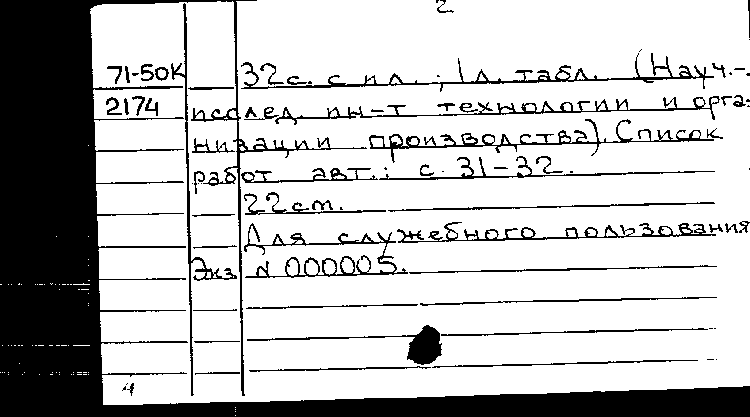 2
71-50К 32с. с ил.; 1л. табл. (Науч.-
2174 исслед. ин-т технологии и орга-
низации производства). Список
работ авт.: с. 31-32.
22см.
Для служебного пользования
Экз N 000005.
4